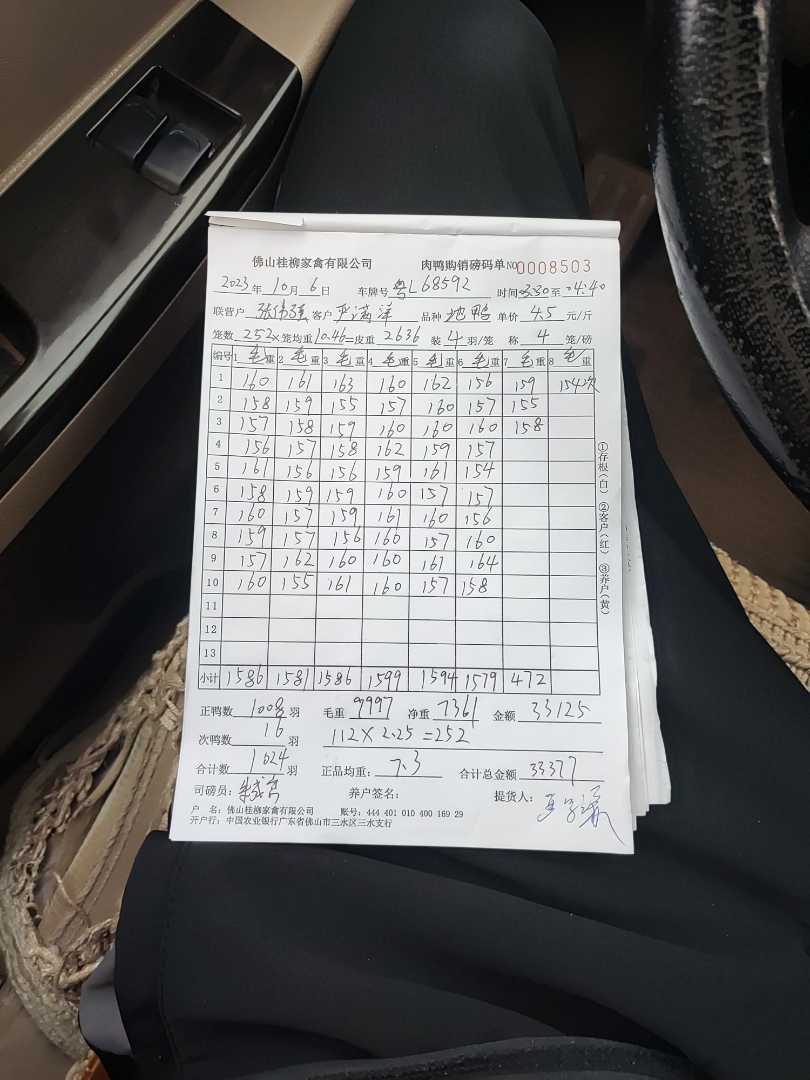 佛山桂柳家禽有限公司 肉鸭购销磅码单 NO 0008503
2023年 10月 6日 车牌号 粤L68592 时间 3:30 至 04:40
联营户 张伟强 客户 品种 地鸭 单价 4.5 元/斤
笼数 252 × 笼均重 10.46 = 皮重 2636 装 4 羽/笼 称 4 笼/磅
编号 1 毛重 2 毛重 3 毛重 4 毛重 5 毛重 6 毛重 7 毛重 8 毛重
1 160 161 163 160 162 156 159 154次
2 158 159 155 157 160 157 155
3 157 158 159 160 160 160 158
4 156 157 158 162 159 157
5 161 156 156 159 161 154
6 158 159 159 160 157 157
7 160 157 159 161 160 156
8 159 157 156 160 157 160
9 157 162 160 160 161 164
10 160 155 161 160 157 158
11
12
13
小计 1586 1581 1586 1599 1594 1579 472
正鸭数 1008 羽 毛重 9997 净重 7361 金额 33125
次鸭数 16 羽 112×2.25=252
合计数 1024 羽 正品均重: 7.3 合计总金额 33377
司磅员: 养户签名: 提货人:
户 名: 佛山桂柳家禽有限公司 账号: 444 401 010 400 169 29
开户行: 中国农业银行广东省佛山市三水区三水支行
①存根(白) ②客户(红) ③养户(黄)